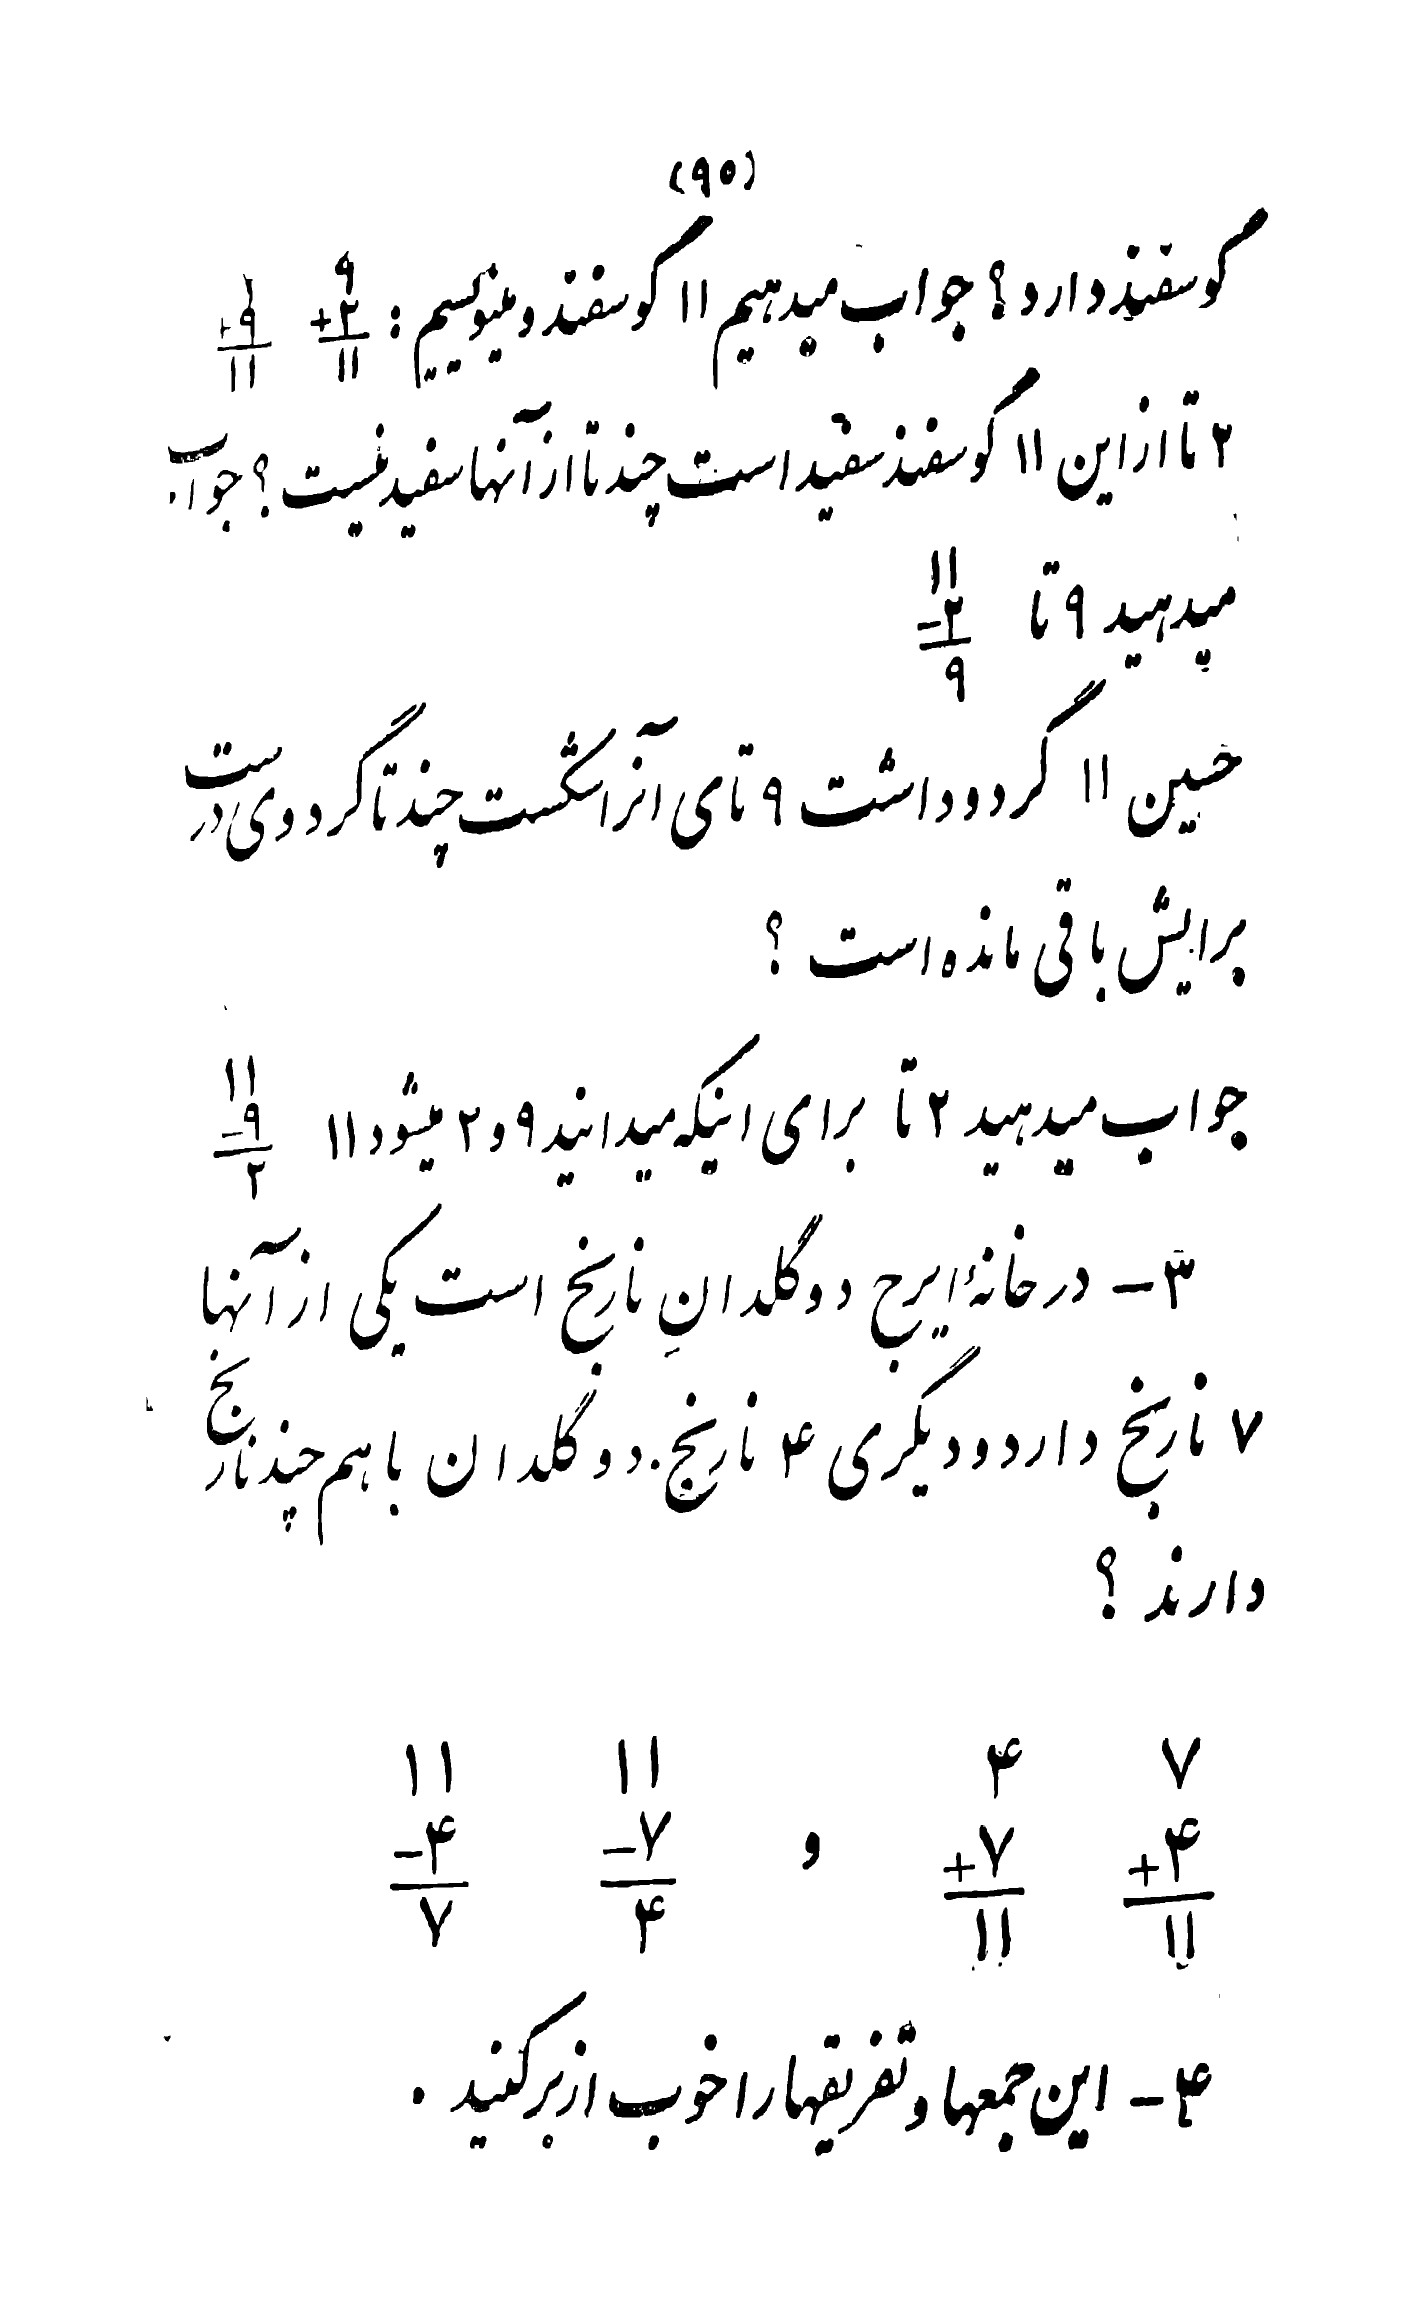 (۹۵)
گوسفند دارد؟ جواب میدهیم ۱۱ گوسفند و مینویسیم: ۹ +۲ ۱۱ ۲ +۹ ۱۱
۲ تا از این ۱۱ گوسفند سفید است چند تا از آنها سفید نیست؟ جواب
میدهید ۹ تا ۱۱ -۲ ۹
حسین ۱۱ گردو داشت ۹ تای آنرا شکست چند تا گردوی درست
برایش باقی مانده است؟
جواب میدهید ۲ تا برای اینکه میدانید ۹ و ۲ میشود ۱۱ ۱۱ -۹ ۲
۳- در خانهٔ ایرج دو گلدانِ نارنج است یکی از آنها
۷ نارنج دارد و دیگری ۴ نارنج. دو گلدان با هم چند نارنج
دارند؟
۷ ۴ ۱۱ ۱۱
+۴ +۷ و -۷ -۴
۱۱ ۱۱ ۴ ۷
۴- این جمعها و تفریقها را خوب از بر کنید.